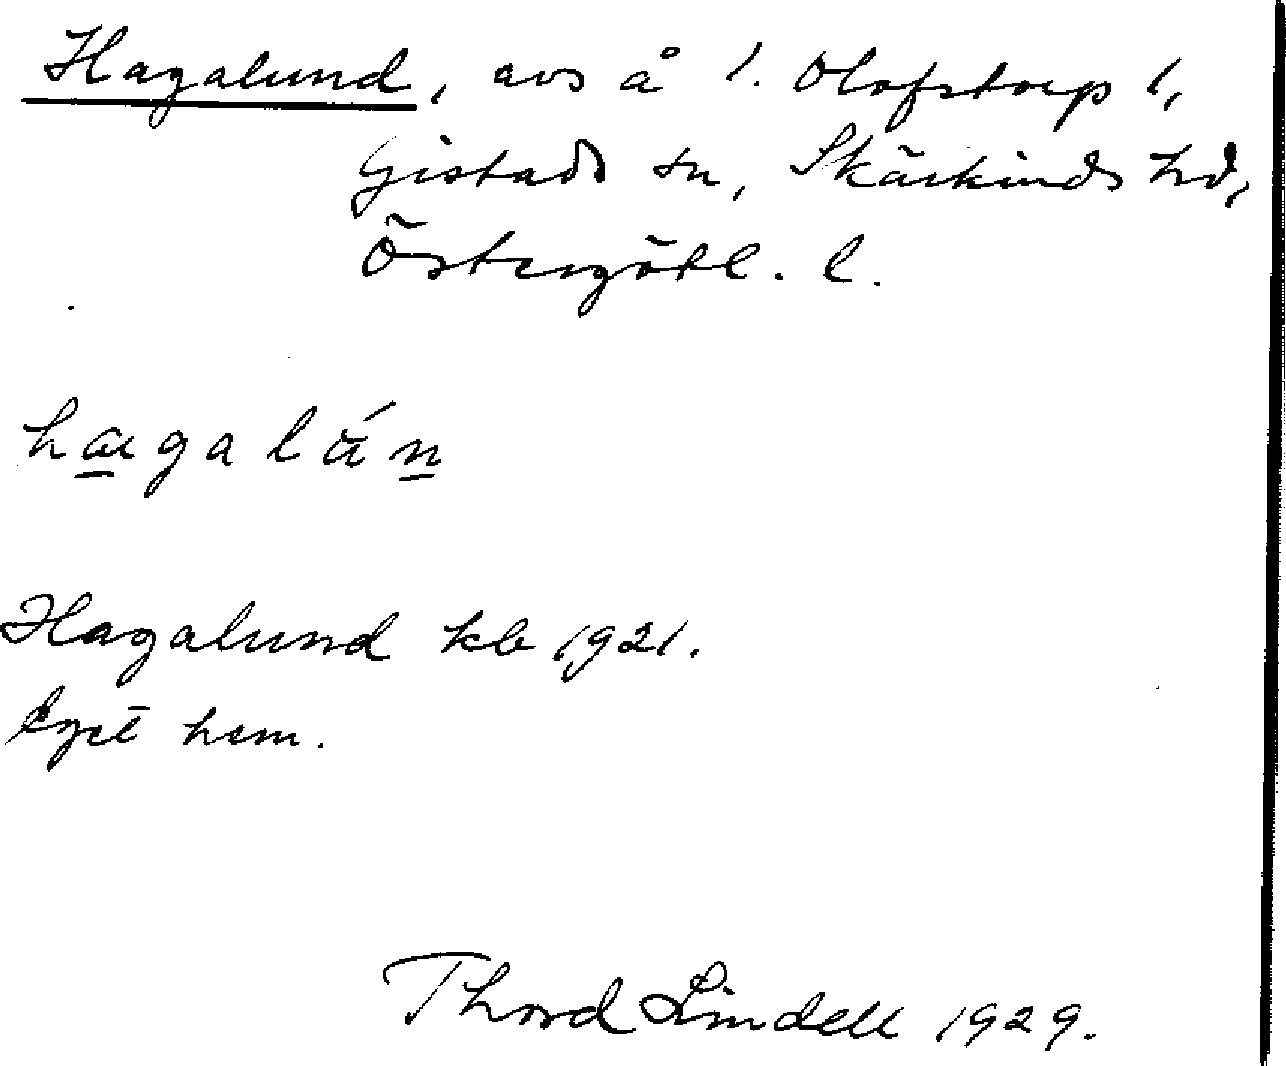 Hagalund, avs å 1. Olofstorp 1,
Gistads sn, Skärkinds hd,
Östergötl. l.
hagalån
Hagalund kb 1921.
Eget hem.
Thord Lindell 1929.